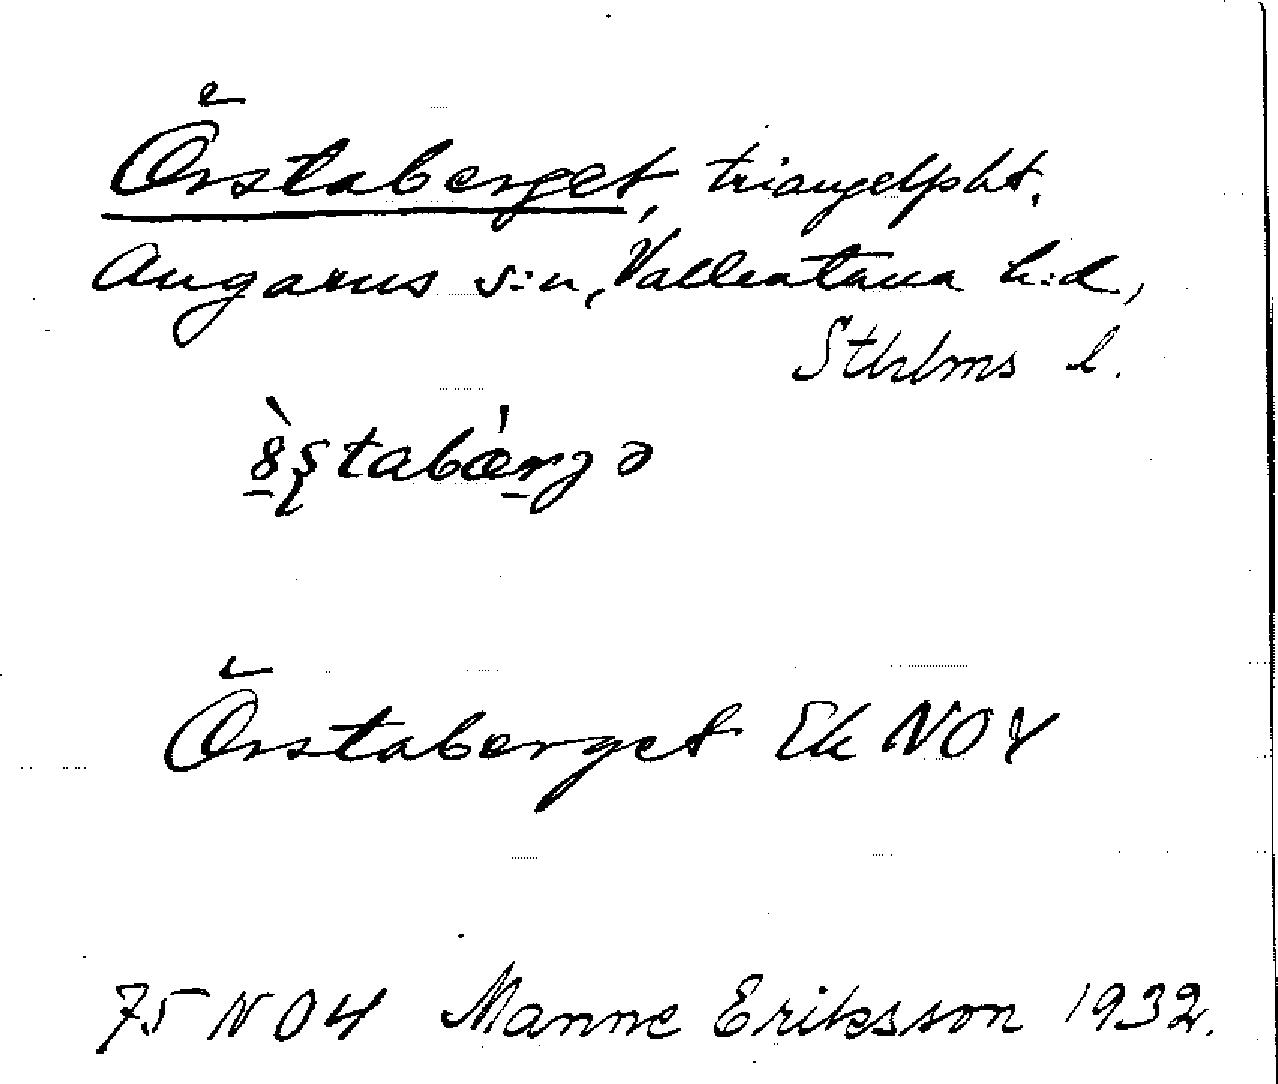 Örstaberget, triangelpkt.
Angarns s:n, Vallentuna h:d,
Sthlms l.
ö̀ʂtabǽrgə
Örstaberget Ek NO4
75 NO4 Manne Eriksson 1932.